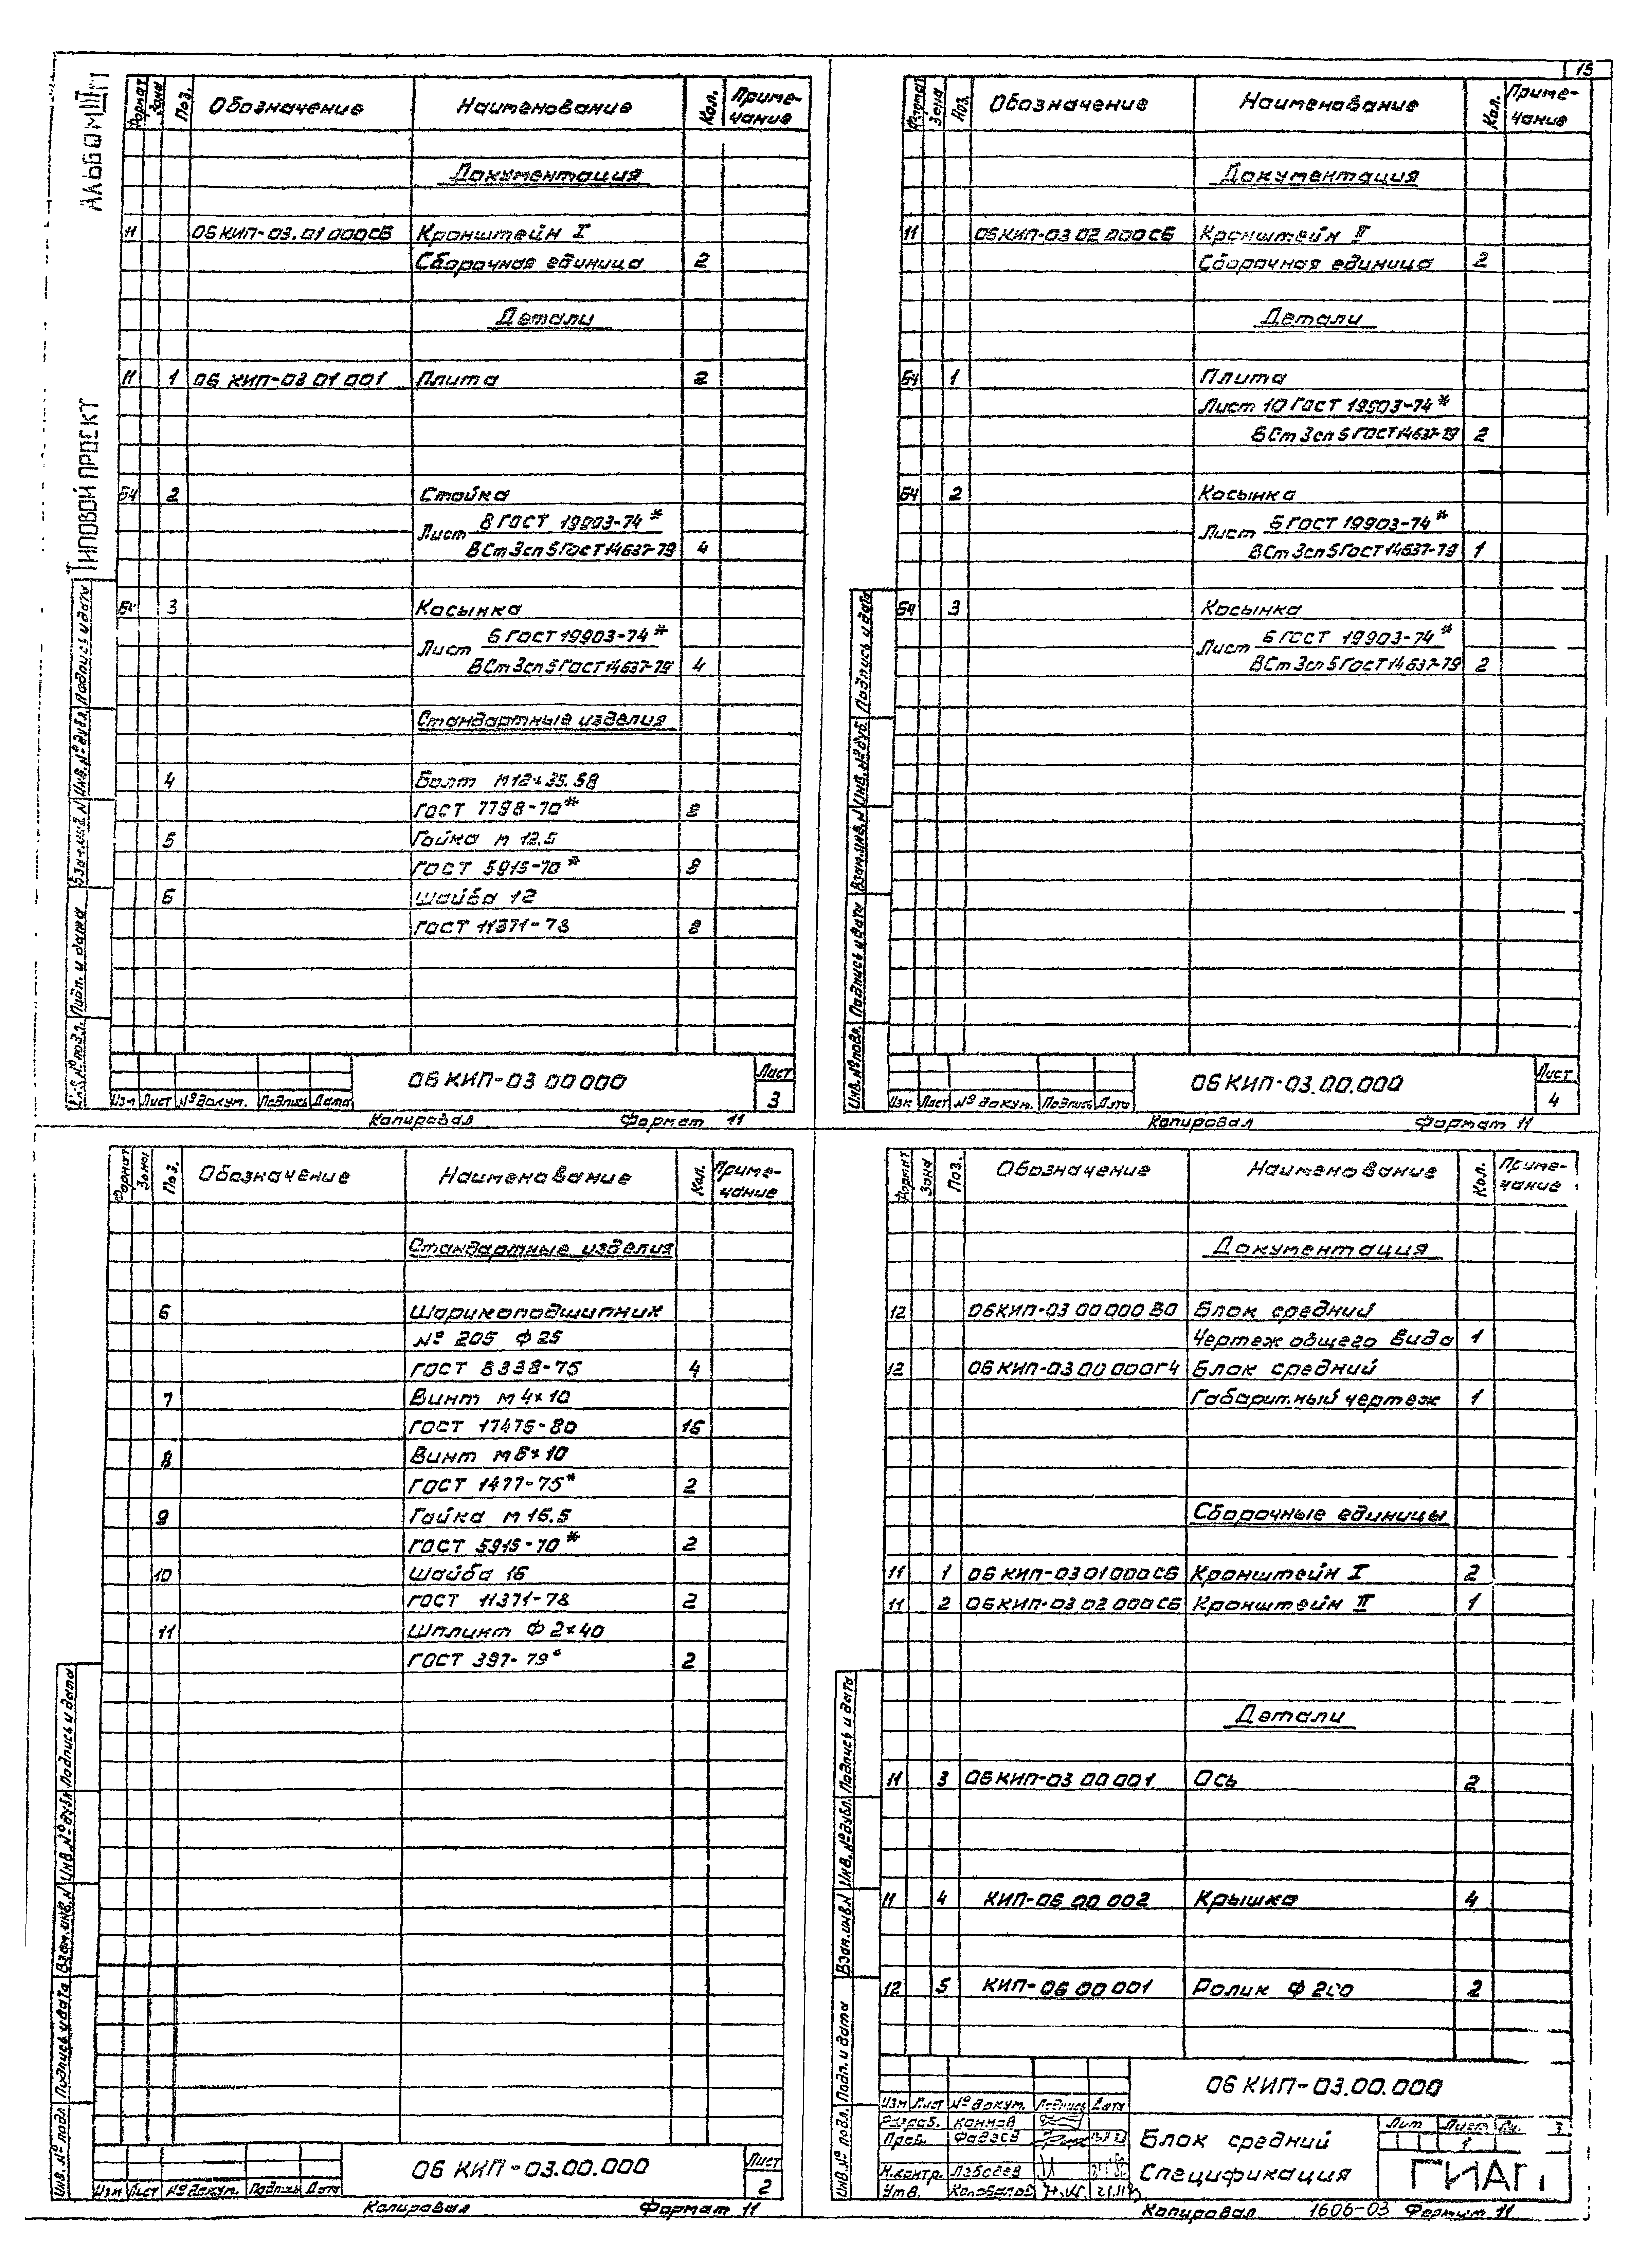 15
Альбом III
Типовой проект
Формат Зона Поз. Обозначение Наименование Кол. Примечание
Документация
11 06 КИП-03.01 000СБ Кронштейн I
Сборочная единица 2
Детали
11 1 06 КИП-03 01 001 Плита 2
БЧ 2 Стойка
8 ГОСТ 19903-74*
Лист
ВСт3сп5 ГОСТ 14637-79 4
БЧ 3 Косынка
6 ГОСТ 19903-74*
Лист
ВСт3сп5 ГОСТ 14637-79 4
Стандартные изделия
4 Болт М12×35.58
ГОСТ 7798-70* 8
5 Гайка М 12.5
ГОСТ 5915-70* 8
6 Шайба 12
ГОСТ 11371-78 8
Инв. № подл. Подп. и дата Взам. инв. N Инв. № дубл. Подпись и дата
06 КИП-03 00 000
Лист
3
Изм Лист № докум. Подпись Дата
Копировал Формат 11
Формат Зона Поз. Обозначение Наименование Кол. Примечание
Документация
11 06 КИП-03 02 000 СБ Кронштейн II
Сборочная единица 2
Детали
БЧ 1 Плита
Лист 10 ГОСТ 19903-74*
ВСт3сп5 ГОСТ 14637-79 2
БЧ 2 Косынка
6 ГОСТ 19903-74*
Лист
ВСт3сп5 ГОСТ 14637-79 1
БЧ 3 Косынка
6 ГОСТ 19903-74*
Лист
ВСт3сп5 ГОСТ 14637-79 2
Инв. № подл. Подпись и дата Взам. инв. N Инв. № дуб. Подпись и дата
06 КИП-03.00.000
Лист
4
Изм Лист № докум. Подпись Дата
Копировал Формат 11
Формат Зона Поз. Обозначение Наименование Кол. Примечание
Стандартные изделия
6 Шарикоподшипник
№ 205 Ф 25
ГОСТ 8338-75 4
7 Винт М 4×10
ГОСТ 17475-80 16
8 Винт М6×10
ГОСТ 1477-75* 2
9 Гайка М 16.5
ГОСТ 5915-70* 2
10 Шайба 16
ГОСТ 11371-78 2
11 Шплинт Ф 2×40
ГОСТ 397-79* 2
Инв. № подл Подпись и дата Взам. инв. N Инв. № дубл Подпись и дата
06 КИП-03.00.000
Лист
2
Изм Лист № докум. Подпись Дата
Копировал Формат 11
Формат Зона Поз. Обозначение Наименование Кол. Примечание
Документация
12 06 КИП-03 00 000 ВО Блок средний
Чертеж общего вида 1
12 06 КИП-03 00 000ГЧ Блок средний
Габаритный чертеж 1
Сборочные единицы
11 1 06 КИП-03 01 000 СБ Кронштейн I 2
11 2 06 КИП-03 02 000 СБ Кронштейн II 1
Детали
11 3 06 КИП-03 00 001 Ось 2
11 4 КИП-06 00 002 Крышка 4
12 5 КИП-06 00 001 Ролик Ф 200 2
Инв. № подл. Подп. и дата Взам. инв. N Инв. № дубл. Подпись и дата
06 КИП-03.00.000
Изм Лист № докум. Подпись Дата
Разраб.
Пров. Фадеев
Н.контр. Лебедев
Утв.
Блок средний
Спецификация
Лит Лист
1 3
Копировал 1606-03 Формат 11